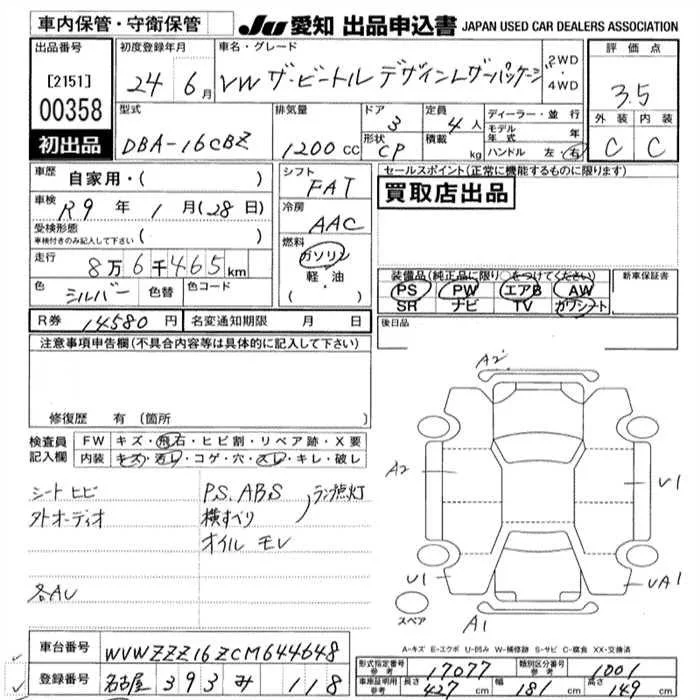 車内保管・守衛保管
JU 愛知 出品申込書 JAPAN USED CAR DEALERS ASSOCIATION
出品番号 [2151] 00358 初出品
初度登録年月 24年 6月
車名・グレード VW ザ・ビートル デザインレザーパッケージ 2WD・4WD
評価点 3.5
外装 内装
C C
型式 DBA-16CBZ
排気量 1200 CC
ドア 3 形状 CP
定員 4人 積載 kg
ディーラー・並行
モデル年式 年
ハンドル 左・右
車歴 自家用・( )
車検 R9年 1月(28日)
受検形態 車検付きのみ記入して下さい ( )
走行 8万6千465km
色 シルバー 色替 色コード
シフト FAT
冷房 AAC
燃料 ガソリン 軽・油 ( )
セールスポイント(正常に機能するものに限ります)
買取店出品
装備品(純正品に限り○をつけてください) 新車保証書
PS PW エアB AW
SR ナビ TV カワシート
後日品
R券 14580円 名変通知期限 月 日
注意事項申告欄(不具合内容等は具体的に記入して下さい)
修復歴 有(箇所
検査員記入欄
FW キズ・飛石・ヒビ割・リペア跡・X要
内装 キズ・汚レ・コゲ・穴・スレ・キレ・破レ
シートヒビ P.S. ABS ランプ点灯
外オーディオ 横すべり
オイルモレ
各AU
A2
A2 U1
U1 UA1
スペア A1
A-キズ E-エクボ U-凹み W-補修跡 S-サビ C-腐食 XX-交換済
車台番号 WVWZZZ16ZCM644648
登録番号 名古屋 393 み 118
型式指定番号 参考 17077 類別区分番号 参考 1001
車庫証明用 参考 長さ 427cm 幅 181cm 高さ 149cm